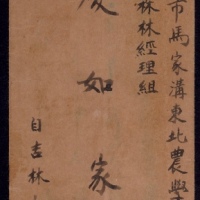 市馬家溝東北農學
森林經理組
友如家
自吉林